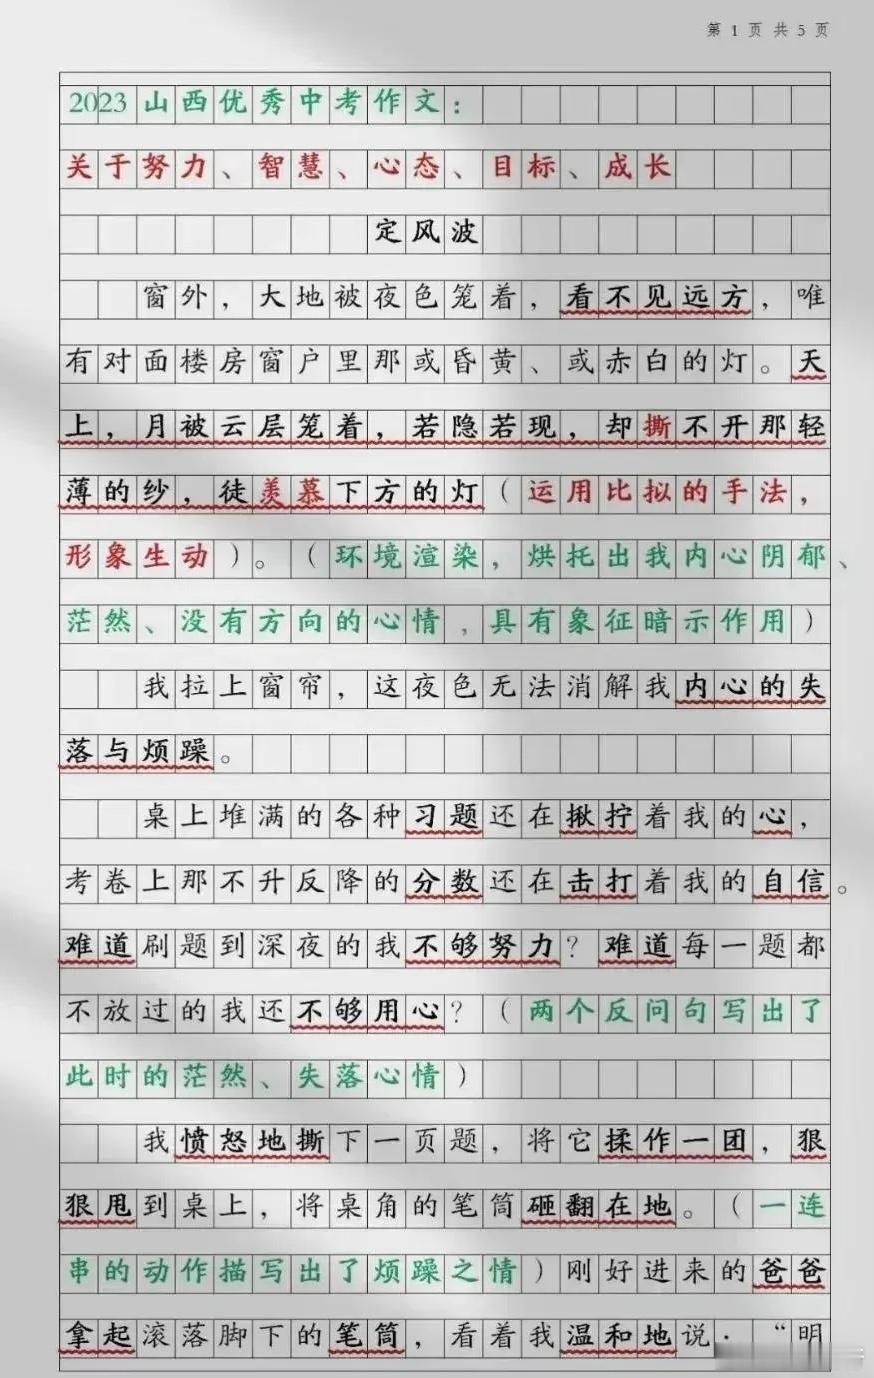 第 1 页 共 5 页
2023山西优秀中考作文：
关于努力、智慧、心态、目标、成长
定风波
窗外，大地被夜色笼着，看不见远方，唯
有对面楼房窗户里那或昏黄、或赤白的灯。天
上，月被云层笼着，若隐若现，却撕不开那轻
薄的纱，徒羡慕下方的灯（运用比拟的手法，
形象生动）。（环境渲染，烘托出我内心阴郁、
茫然、没有方向的心情，具有象征暗示作用）
我拉上窗帘，这夜色无法消解我内心的失
落与烦躁。
桌上堆满的各种习题还在揪拧着我的心，
考卷上那不升反降的分数还在击打着我的自信。
难道刷题到深夜的我不够努力？难道每一题都
不放过的我还不够用心？（两个反问句写出了
此时的茫然、失落心情）
我愤怒地撕下一页题，将它揉作一团，狠
狠甩到桌上，将桌角的笔筒砸翻在地。（一连
串的动作描写出了烦躁之情）刚好进来的爸爸
拿起滚落脚下的笔筒，看着我温和地说：“明